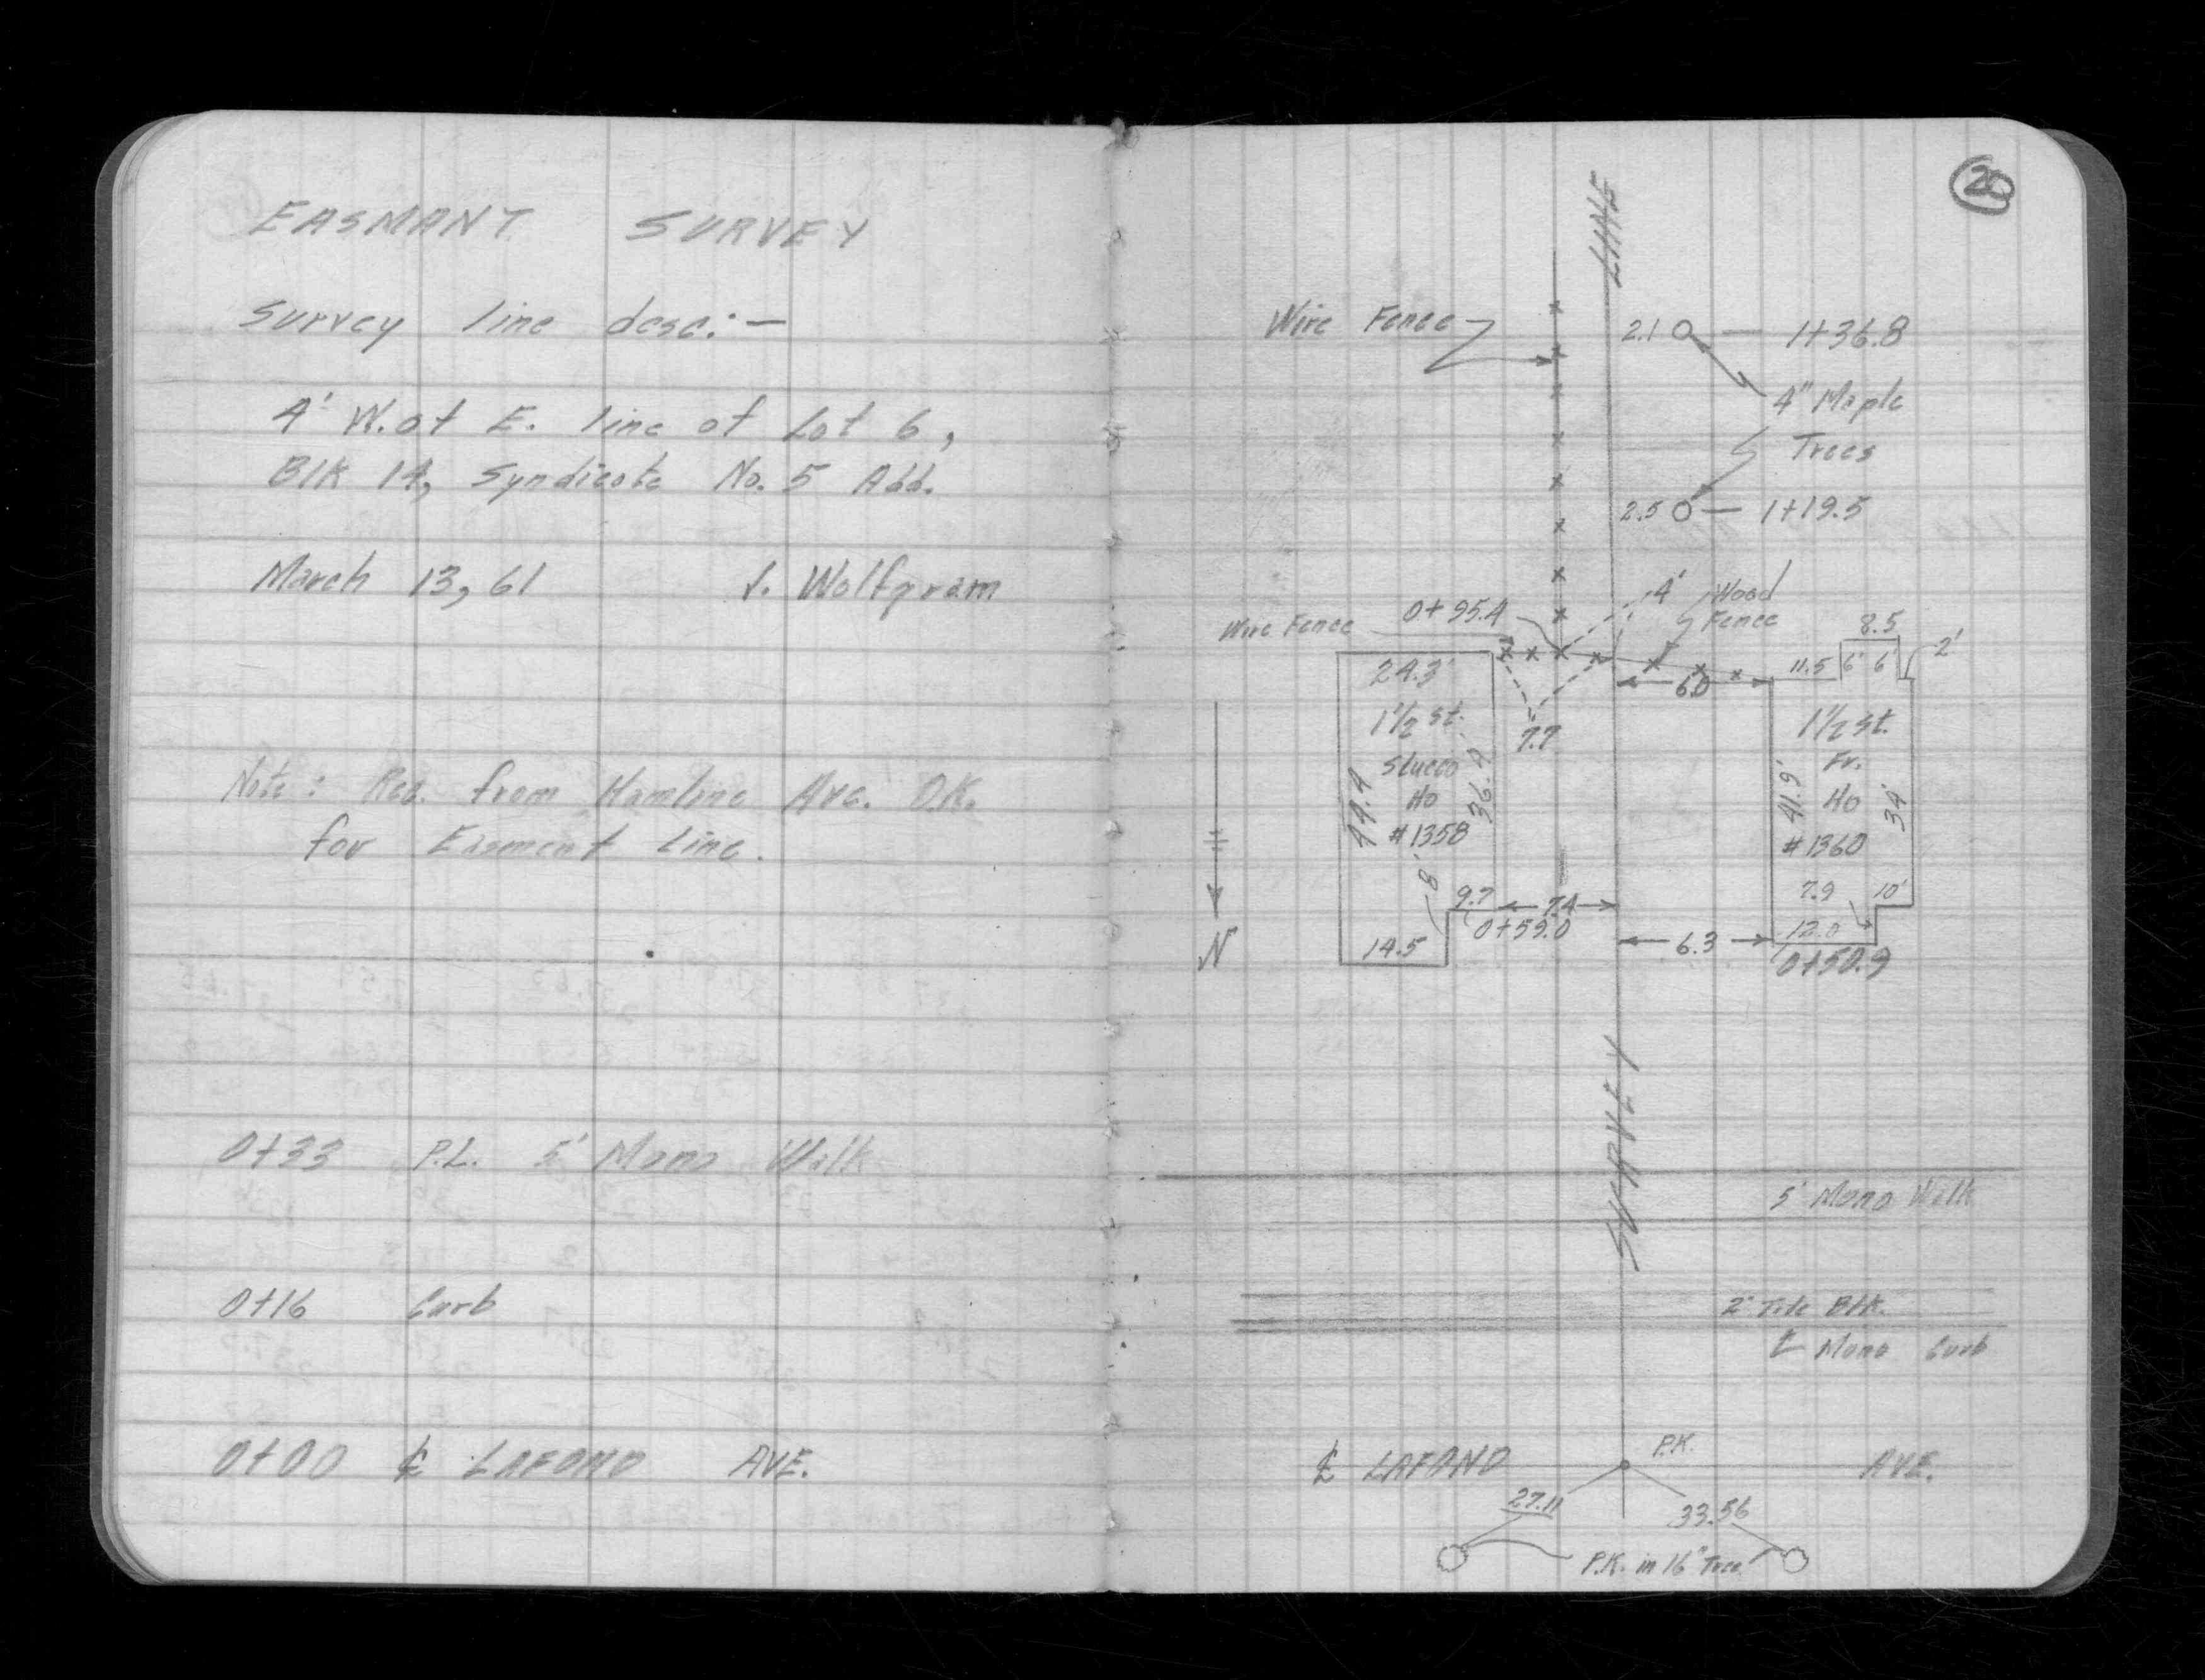 EASMANT SURVEY
Survey line desc:-
4' W. of E. line of Lot 6,
Blk 14, Syndicate No. 5 Add.
March 13, 61 J. Wolfgram
Note: Rec. from Hamline Ave. O.K.
for Easment Line.
0+33 P.L. 5' Mono Walk
0+16 Curb
0+00 ℄ LAFOND AVE.
20
LINE
Wire Fence
2.1 1+36.8
4" Maple
Trees
2.5 1+19.5
4' Wood
Fence
0+95.4
Wire Fence
8.5
2'
24.3'
11.5 6' 6'
6.0
1½ st.
Stucco
Ho
#1358
44.4
36.4
7.7
1½ st.
Fr.
Ho
#1360
41.9'
34'
8'
9.7 7.4
0+59.0
14.5
7.9 10'
12.0
6.3
0+50.9
N
SURVEY
5' Mono Walk
2' Tile Blk.
Mono Curb
P.K.
℄ LAFOND AVE.
27.11 33.56
P.K. in 16" Tree